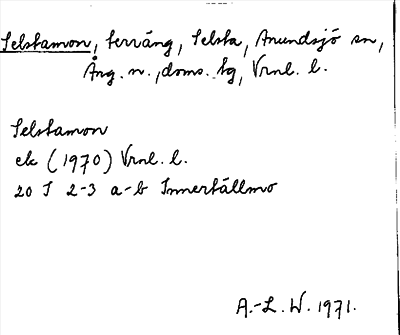 Selstamon, terräng, Selsta, Anundsjö sn,
Ång. n., doms. tg, Vrnl. l.
Selstamon
ek (1970) Vrnl. l.
20 I 2-3 a-b Innertällmo
A.-L. W. 1971.